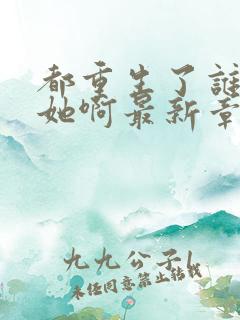 都重生了誰
她啊最新章
九九公子l
未经同意禁止转载